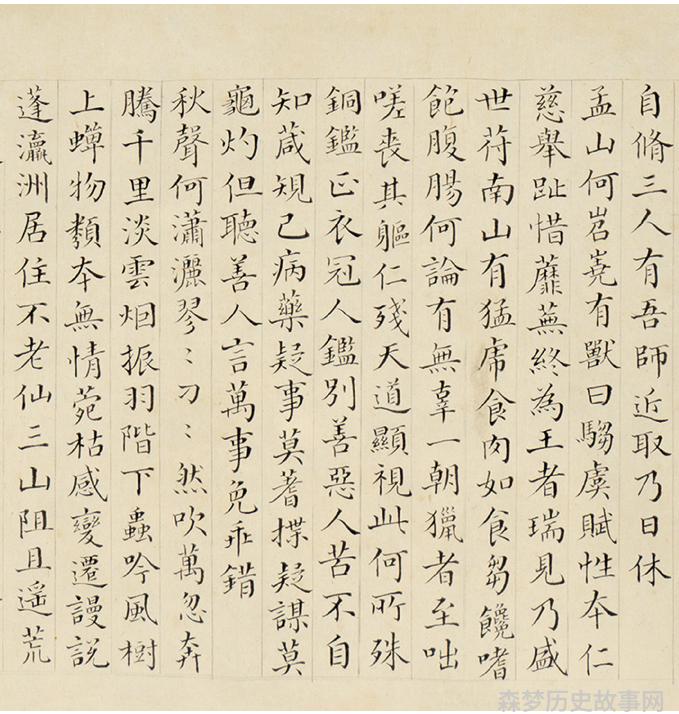 自脩三人有吾師近取乃日休
孟山何岧嶤有獸曰騶虞賦性夲仁
慈舉趾惜蘼蕪終為王者瑞見乃盛
世苻南山有猛虎食肉如食芻饞嗜
飽腹腸何論有無辜一朝獵者至咄
嗟喪其軀仁殘天道顯視此何所殊
銅鑑正衣冠人鑑別善惡人苦不自
知葴規己病藥疑事莫蓍揲疑謀莫
龜灼但聽善人言萬事免乖錯
秋聲何瀟灑翏〻刁〻然吹萬忽奔
騰千里淡雲烟振羽階下蟲吟風樹
上蟬物類夲無情菀枯感變遷謾説
蓬瀛洲居住不老仙三山阻且遥荒
森梦历史故事网